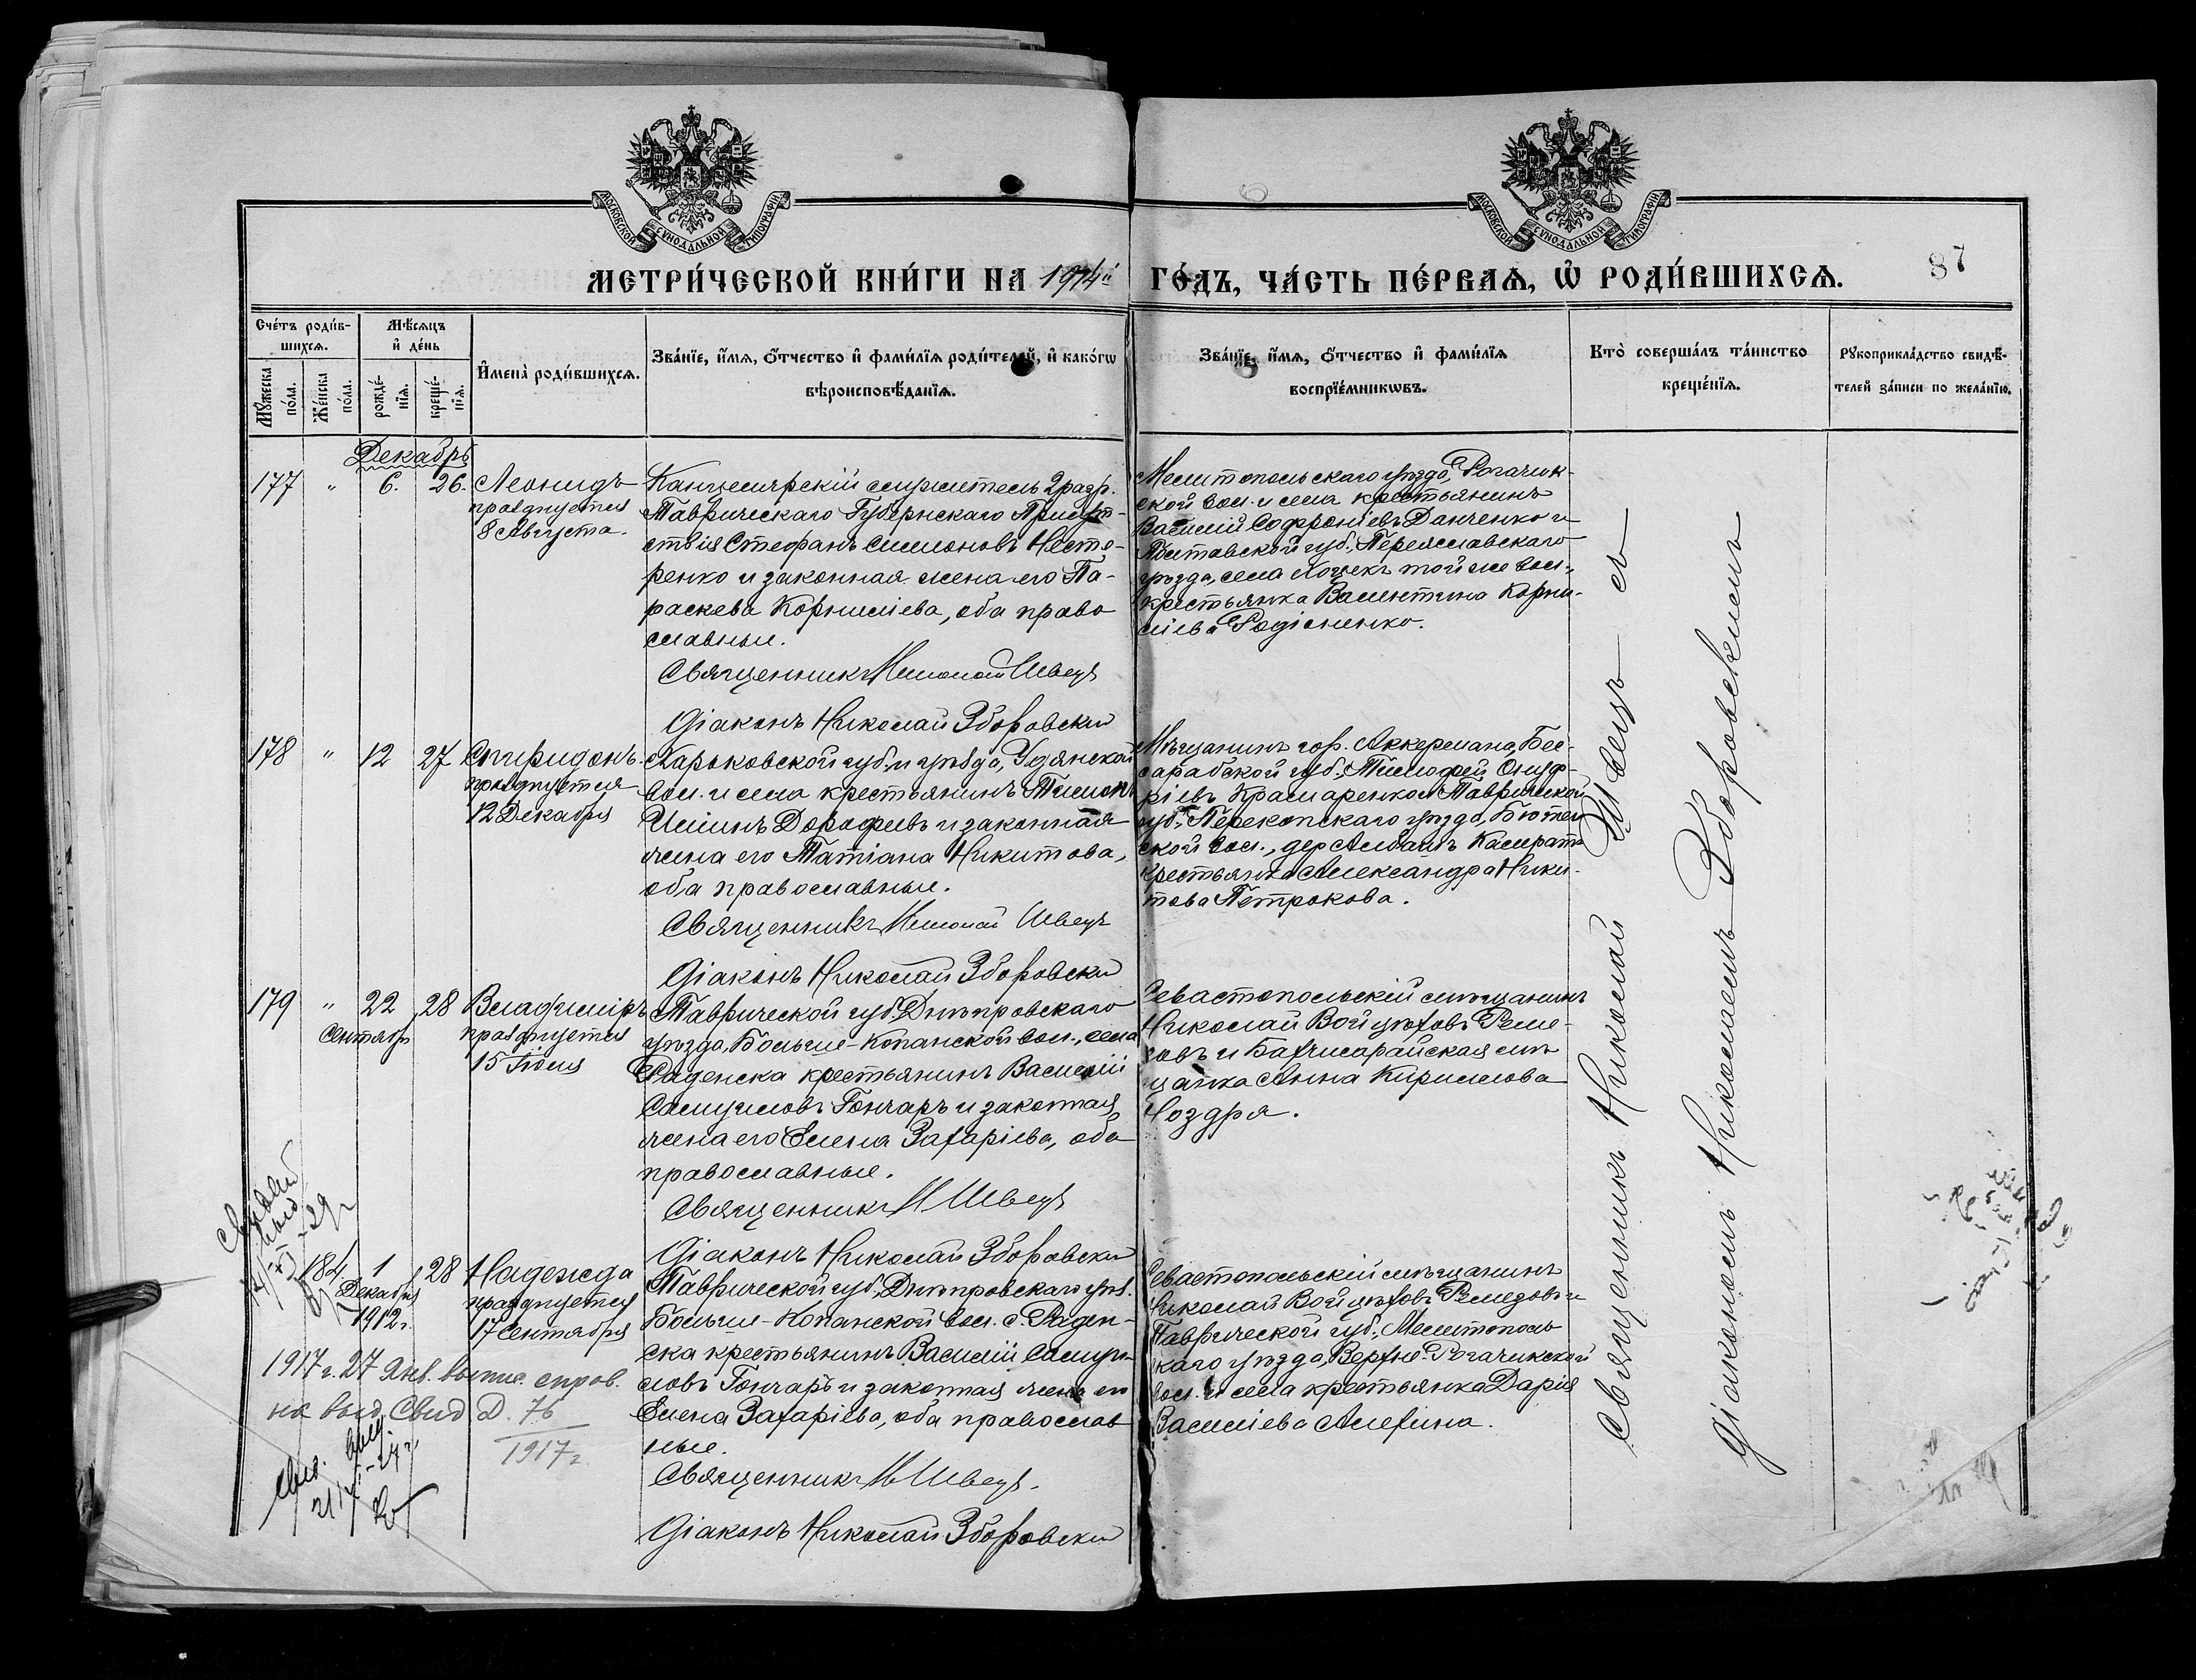 МОСКОВСКОЙ СУНОДАЛЬНОЙ ТИПОГРАФІИ
МОСКОВСКОЙ СУНОДАЛЬНОЙ ТИПОГРАФІИ
МЕТРИ́ЧЕСКОЙ КНИ́ГИ НА 1914й ГО́ДЪ, ЧА́СТЬ ПЕ́РВАѦ, Ѡ҆ РОДИ́ВШИХСѦ.
87
Сче́тъ роди́в-
шихсѧ.
Мꙋ́жеска по́ла.
Же́нска по́ла.
Мѣ́сѧцъ
и҆ де́нь
рожде́-
нїѧ.
креще́-
нїѧ.
И҆мена̀ роди́вшихсѧ.
Зва́нїе, и҆́мѧ, ѻ҆́тчество и҆ фами́лїѧ роди́телей, и҆ како́гѡ
вѣроисповѣ́данїѧ.
Зва́нїе, и҆́мѧ, ѻ҆́тчество и҆ фами́лїѧ
воспрїе́мникѡвъ.
Кто̀ соверша́лъ та́инство
креще́нїѧ.
Рꙋкоприкла́дство свидѣ́-
телей за́писи по жела́нїю.
Декабрь
177 " 6. 26. Леонидъ
празднуется
8 Августа.
Канцелярскій служитель 2 разр.
Таврическаго Губернскаго Присут-
ствія Стефанъ Симоновъ Несте-
ренко и законная жена его Па-
раскева Корниліева, оба право
славные.
Священникъ Николай Швецъ
Діаконъ Николай Зборовскій
Мелитопольскаго уѣзда, Рогачик-
ской вол. и села крестьянинъ
Василій Софроніевъ Данченко и
Полтавской губ., Переяславскаго
уѣзда, села Коцекъ той же вол.,
крестьянка Валентина Корни-
ліева Родіоненко.
178 " 12 27 Спиридонъ.
празднуется
12 Декабря
Харьковской губ. и уѣзда, Удянской
вол. и села крестьянинъ Тимонъ
Иліинъ Дорофеевъ и законная
жена его Татіана Никитова,
оба православные.
Священникъ Николай Швецъ
Діаконъ Николай Зборовскій
Мѣщанинъ гор. Аккермана, Бес-
сарабской губ., Тимофей Онуф-
ріевъ Крамаренко и Таврической
губ., Перекопскаго уѣзда,
ской вол., дер
крестьянка Александра Ники-
това Петрокова.
179 " 22 28 Владиміръ
Сентябр празднуется
15 Іюля
Таврической губ. Днѣпровскаго
уѣзда, Больше-Копанской вол., села
Раденска крестьянинъ Василій
Самуиловъ Гончаръ и законная
жена его Елена Захаріева, оба
православные.
Священникъ Н Швецъ
Діаконъ Николай Зборовскій
Севастопольскій мѣщанинъ
Николай Войцѣховъ Реме-
зовъ и Бахчисарайская мѣ
щанка Анна Кириллова
Ноздря.
184 1 28 Надежда
Декабря празднуется
1912 г. 17 Сентября
Таврической губ., Днѣпровскаго уѣз.
Больше-Копанской вол. с. Раден-
ска крестьянинъ Василій Самуи-
ловъ Гончаръ и законная жена его
Елена Захаріева, оба православ
ные.
Священникъ Н Швецъ.
Діаконъ Николай Зборовскій
Севастопольскій мѣщанинъ
Николай Войцѣховъ Ремезовъ и
Таврической губ., Мелитополь
скаго уѣзда, Верхне-Рогачикской
вол. и села крестьянка Дарія
Василіева Алехина.
1917 г. 27 Янв. выпис. справ.
на выд. Свид. Д. 76
1917 г
Священникъ Николай Швецъ съ
діакономъ Николаемъ Зборовскимъ